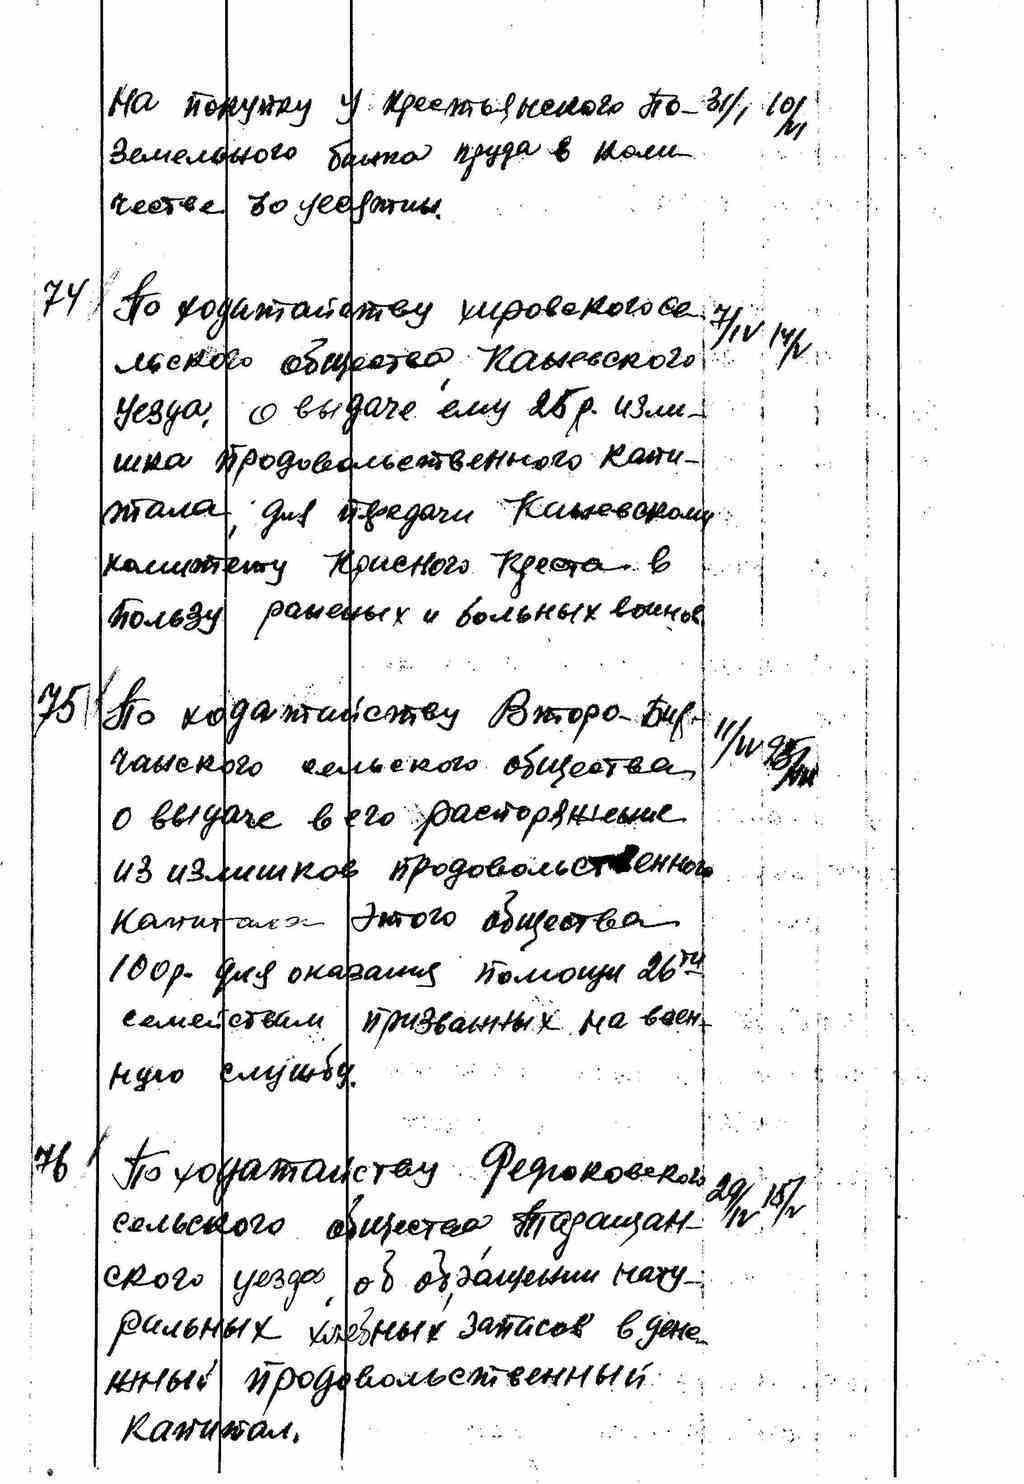 на покупку у крестьянского По- 31/I 10/VI
земельного банка пруда в коли-
честве 30 десятин.
74 По ходатайству хировского се- 7/IV 14/V
льского общества, Каневского
уезда, о выдаче ему 25 р. изли-
шка продовольственного капи-
тала, для передачи Каневскому
комитету Красного Креста в
пользу раненых и больных воинов
75 По ходатайству Второ-
чанского сельского общества
о выдаче в его распоряжение
из излишков продовольственного
капитала этого общества
100 р. для оказания помощи 26ти
семействам призванных на воен-
ную службу.
76 По ходатайству Федюковского 29/IV 15/V
сельского общества Таращан-
ского уезда, об обращении нату-
ральных хлебных запасов в дене-
жный продовольственный
капитал.